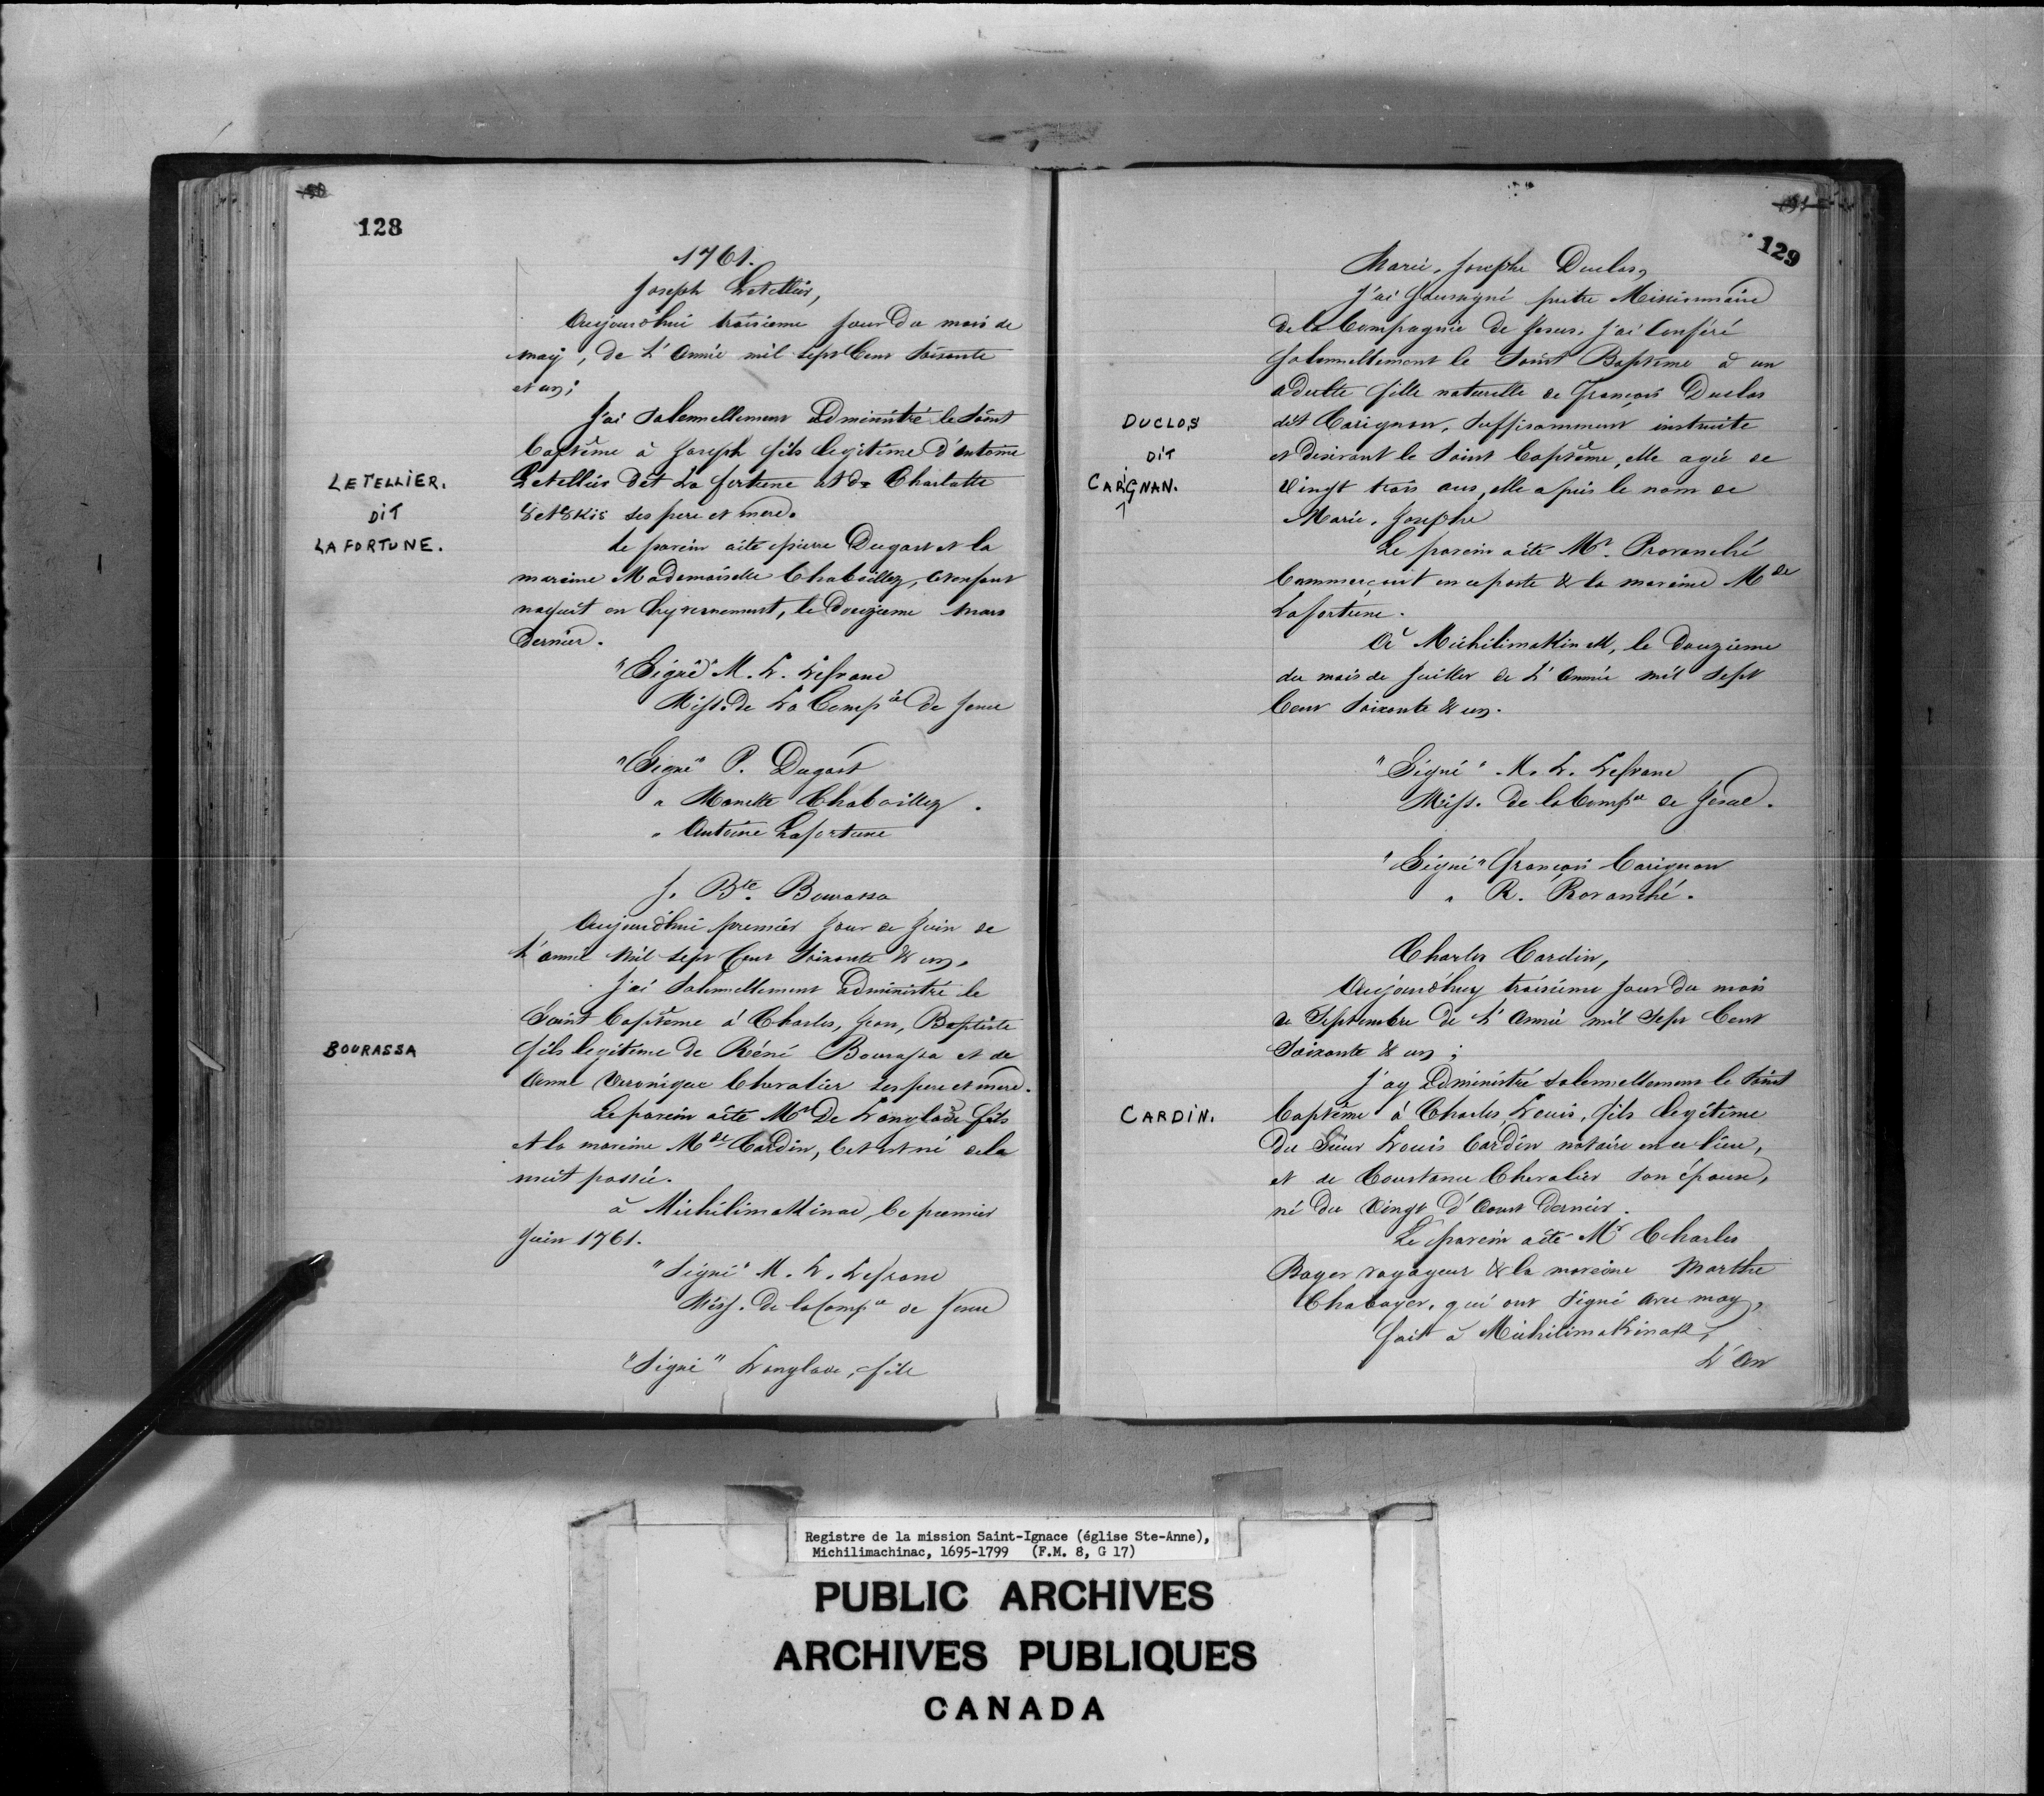 128
1761.
Joseph Letellier,
Aujourdhui troisieme jour du mois de
may, de L'Année mil sept Cent Soixante
et un;
J'ai Solennellement administré le Saint
baptême à Joseph fils legitime d'antoine
LETELLIER.
DIT
LA FORTUNE.
Letellier dit La fortune et de Charlotte
8et8kis ses pere et mere.
Le parein aété pierre Dugast et la
mareine Mademoiselle Chaboillez, Cet enfant
naquit en hyvernement, le Douzieme Mars
Dernier.
"Signé" M. L. Lefranc
Miss. de La Compie de Jesus
"Signé" P. Dugast
" Manette Chaboillez.
" Antoine Lafortune
J. Bte. Bourassa
Aujourdhui premier Jour de Juin de
L'année Mil sept Cent Soixante & un.
J'ai Solennellement administré le
Saint baptême à Charles, Jean, Baptiste
BOURASSA
fils legitime de Réné Bourassa et de
Anne Veronique Chevalier ses pere et mere.
Le parein aété Mr De Langlade fils
et la mareine Mde Cardin, Cet est né de la
nuit passée.
à Michilimakinac, le premier
Juin 1761.
"Signé" M. L. Lefranc
Miss. de la Compie de Jesus
"Signé" Langlade, fils
129
Marie, Josephe Duclos,
J'ai Soussigné prêtre Missionnaire
de la Compagnie de Jesus. J'ai Conféré
Solennellement le Saint Baptême à un
adulte fille naturelle de François Duclos
DUCLOS
DIT
CARIGNAN.
dit Carignan, Suffisamment instruite
et desirant le Saint baptême, elle agée de
Vingt trois ans, elle a pris le nom de
Marie, Josephe
Le parein aété Mr. Provanché
Commerçant en ce poste & la mareine Mde
Lafortune.
A Michilimakinak, le Douzieme
du mois de Juillet de L'Année mil Sept
Cent Soixante & un.
"Signé" M. L. Lefranc
Miss. de la Compie de Jesus.
"Signé" François Carignan
" R. Rovanché.
Charles Cardin,
Aujourdhuy troisieme Jour du mois
de Septembre de L'Année mil Sept Cent
Soixante & un;
J'ay administré solennellement le Saint
CARDIN.
baptême à Charles, Louis, fils legitime
du Sieur Louis Cardin notaire en ce lieu,
et de Constance Chevalier son épouse,
né du Vingt d'Aout Dernier.
Le parein aété Mr Charles
Boyer voyageur & la mareine Marthe
Chaboyer, qui ont Signé avec moy,
fait à Michilimakinak,
L'An
Registre de la mission Saint-Ignace (église Ste-Anne),
Michilimachinac, 1695-1799 (F.M. 8, G 17)
PUBLIC ARCHIVES
ARCHIVES PUBLIQUES
CANADA